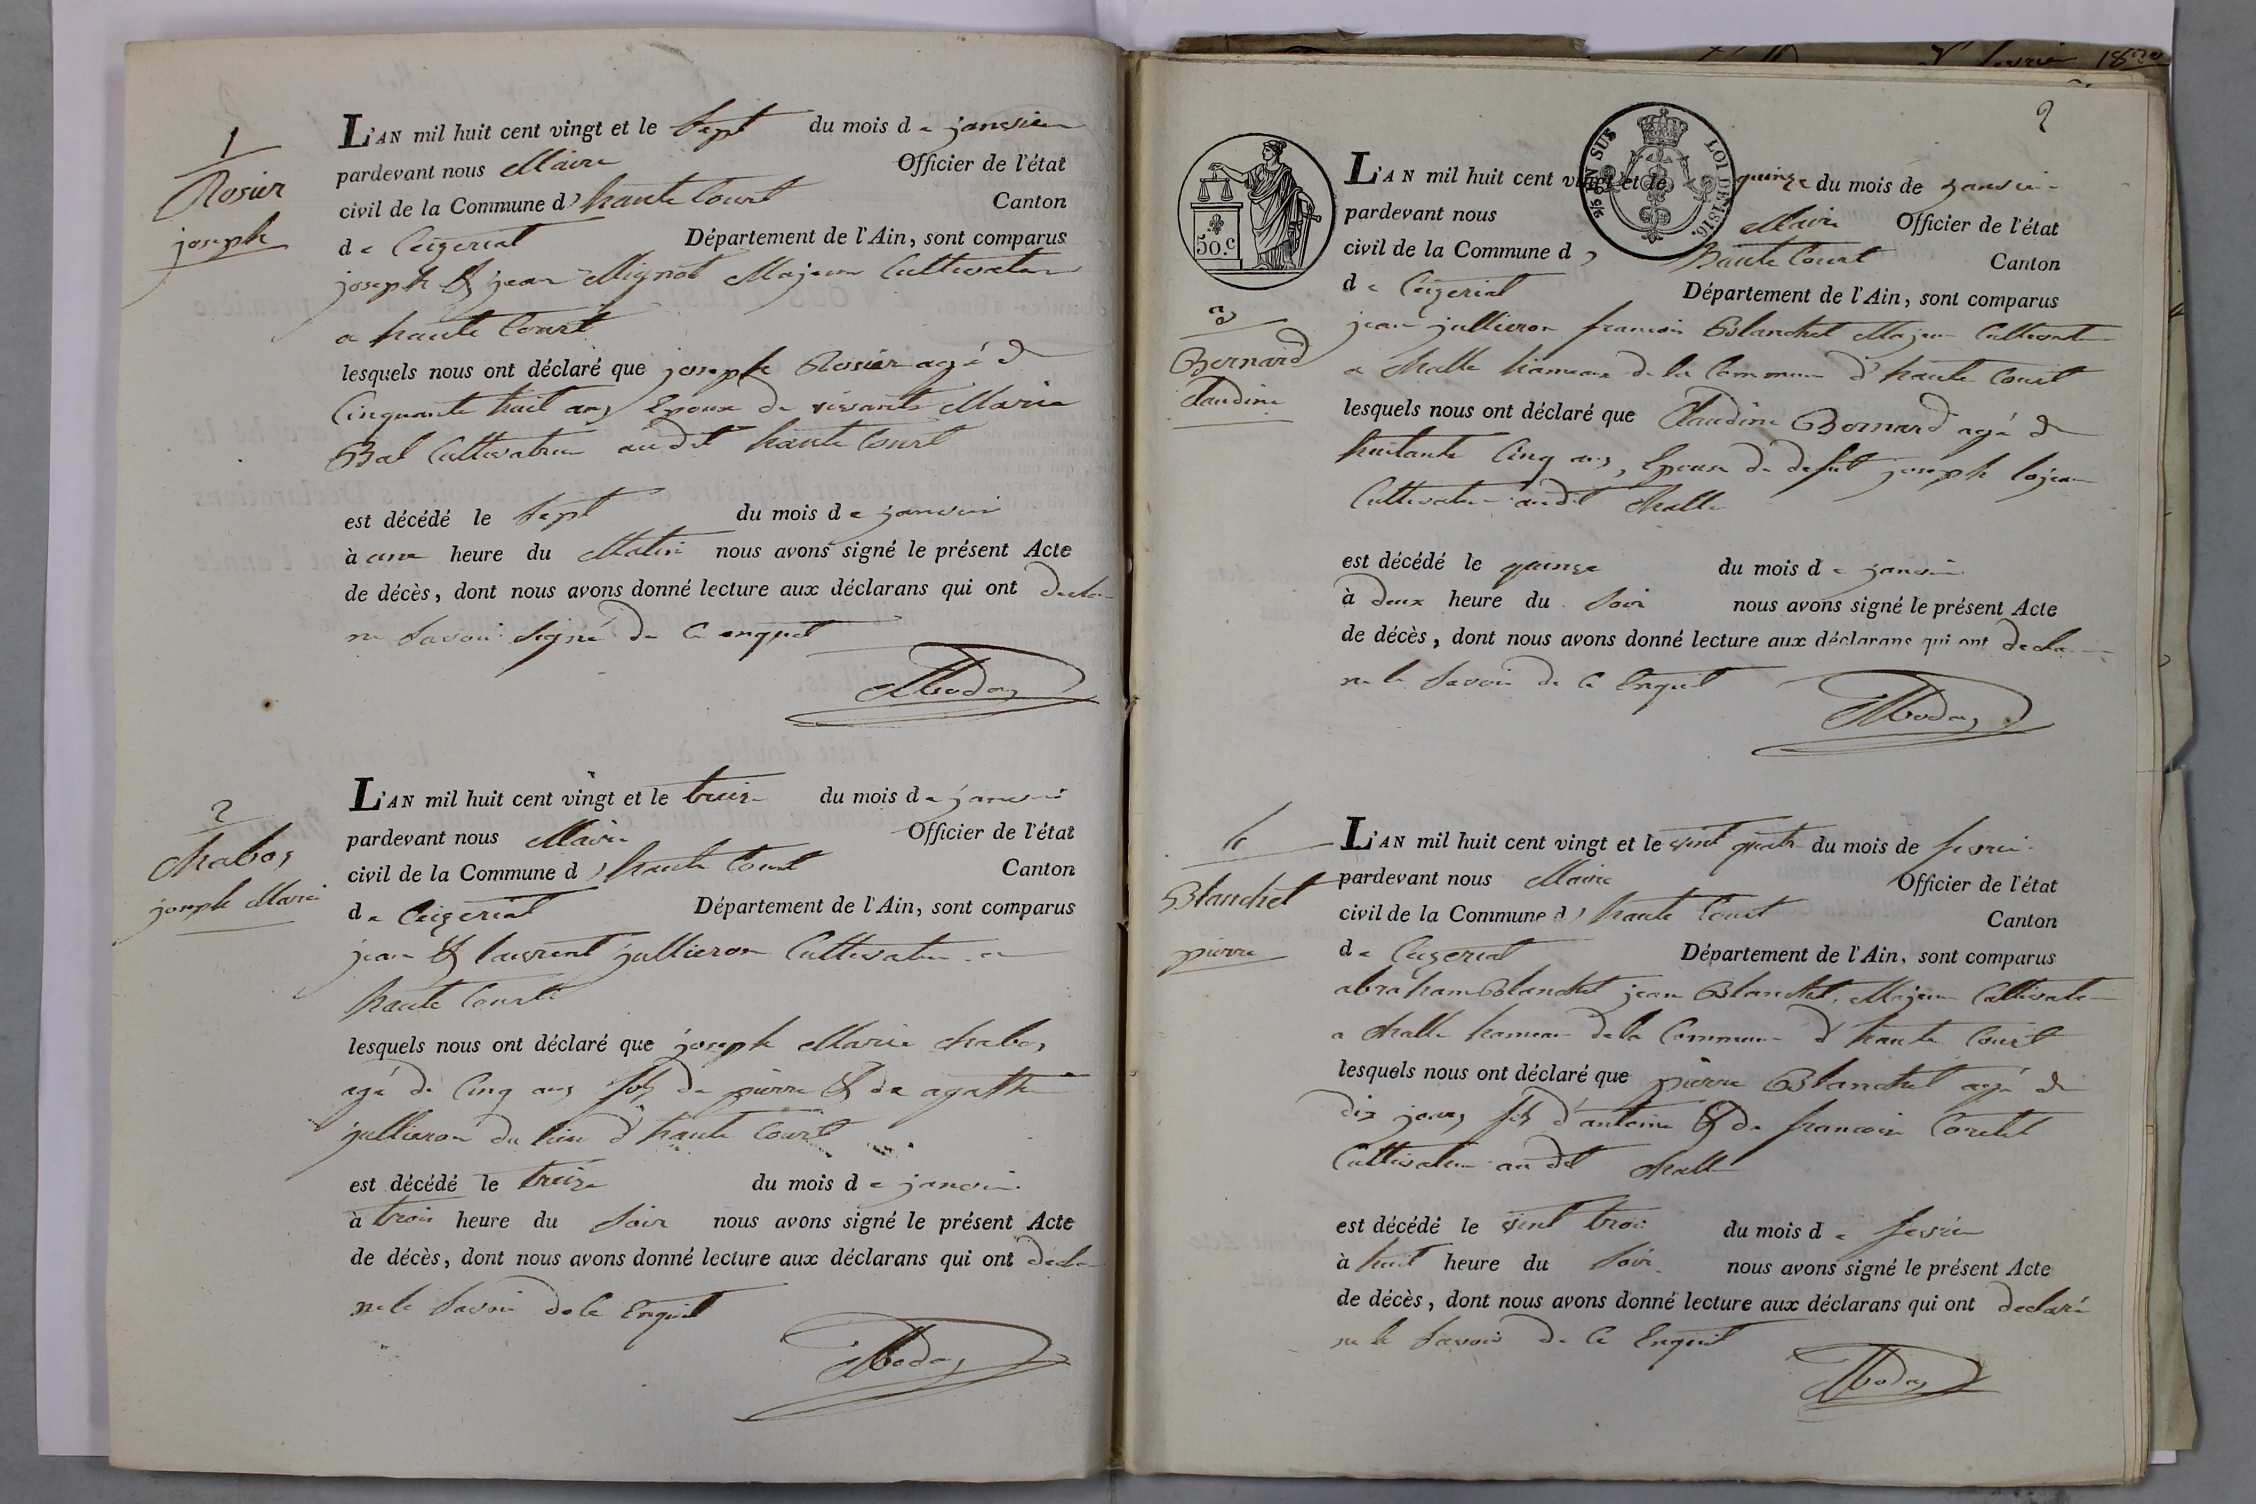 1
Rosier
joseph
L'AN mil huit cent vingt et le Sept du mois de janvier
pardevant nous Maire Officier de l'état
civil de la Commune d'haute Court Canton
de Ceizeriat Département de l'Ain, sont comparus
joseph & jean Mignot Majeur Cultivateur
a haute Court
lesquels nous ont déclaré que joseph Rosier agé de
Cinquante huit ans Epoux de vivante Marie
Bal Cultivatrice audit haute Court
est décédé le Sept du mois de janvier
à une heure du Matin nous avons signé le présent Acte
de décès, dont nous avons donné lecture aux déclarans qui ont
ne Savoir Signé de ce enquit
2
Chabos
joseph Marie
L'AN mil huit cent vingt et le treize du mois de janvier
pardevant nous Maire Officier de l'état
civil de la Commune d'haute Court Canton
de Ceizeriat Département de l'Ain, sont comparus
jean & laurent jullieron Cultivateur a
haute Court
lesquels nous ont déclaré que joseph Marie Chabos
agé de Cinq ans fils de pierre & de agathe
jullieron du lieu d'haute Court
est décédé le treize du mois de janvier
à trois heure du Soir nous avons signé le présent Acte
de décès, dont nous avons donné lecture aux déclarans qui ont
ne le Savoir de ce Enquit
2
50.c
EN SUS
LOI DE 1816.
3
Bernard
Claudine
L'AN mil huit cent vingt et le quinze du mois de janvier
pardevant nous Maire Officier de l'état
civil de la Commune d' haute Court Canton
de Ceizeriat Département de l'Ain, sont comparus
jean jullieron francois Blanchet Majeur Cultivateur
a Challe hameaux de la Commune d'haute Court
lesquels nous ont déclaré que Claudine Bernard agé de
huitante Cinq ans, Epouse de defut joseph
Cultivateur audit Challe
est décédé le quinze du mois de janvier
à deux heure du Soir nous avons signé le présent Acte
de décès, dont nous avons donné lecture aux déclarans qui ont
ne le Savoir de ce Enquit
4
Blanchet
pierre
L'AN mil huit cent vingt et le vint quatre du mois de fevrier
pardevant nous Maire Officier de l'état
civil de la Commune d'haute Court Canton
de Ceizeriat Département de l'Ain, sont comparus
abraham Blanchet jean Blanchet Majeur Cultivateur
a Challe hameau de la Commune d'haute Court
lesquels nous ont déclaré que pierre Blanchet agé de
dix jours fils d'antoine & de francoise
Cultivateur audit Challe
est décédé le vint trois du mois de fevrier
à huit heure du Soir nous avons signé le présent Acte
de décès, dont nous avons donné lecture aux déclarans qui ont declaré
ne le Savoir de ce Enquit